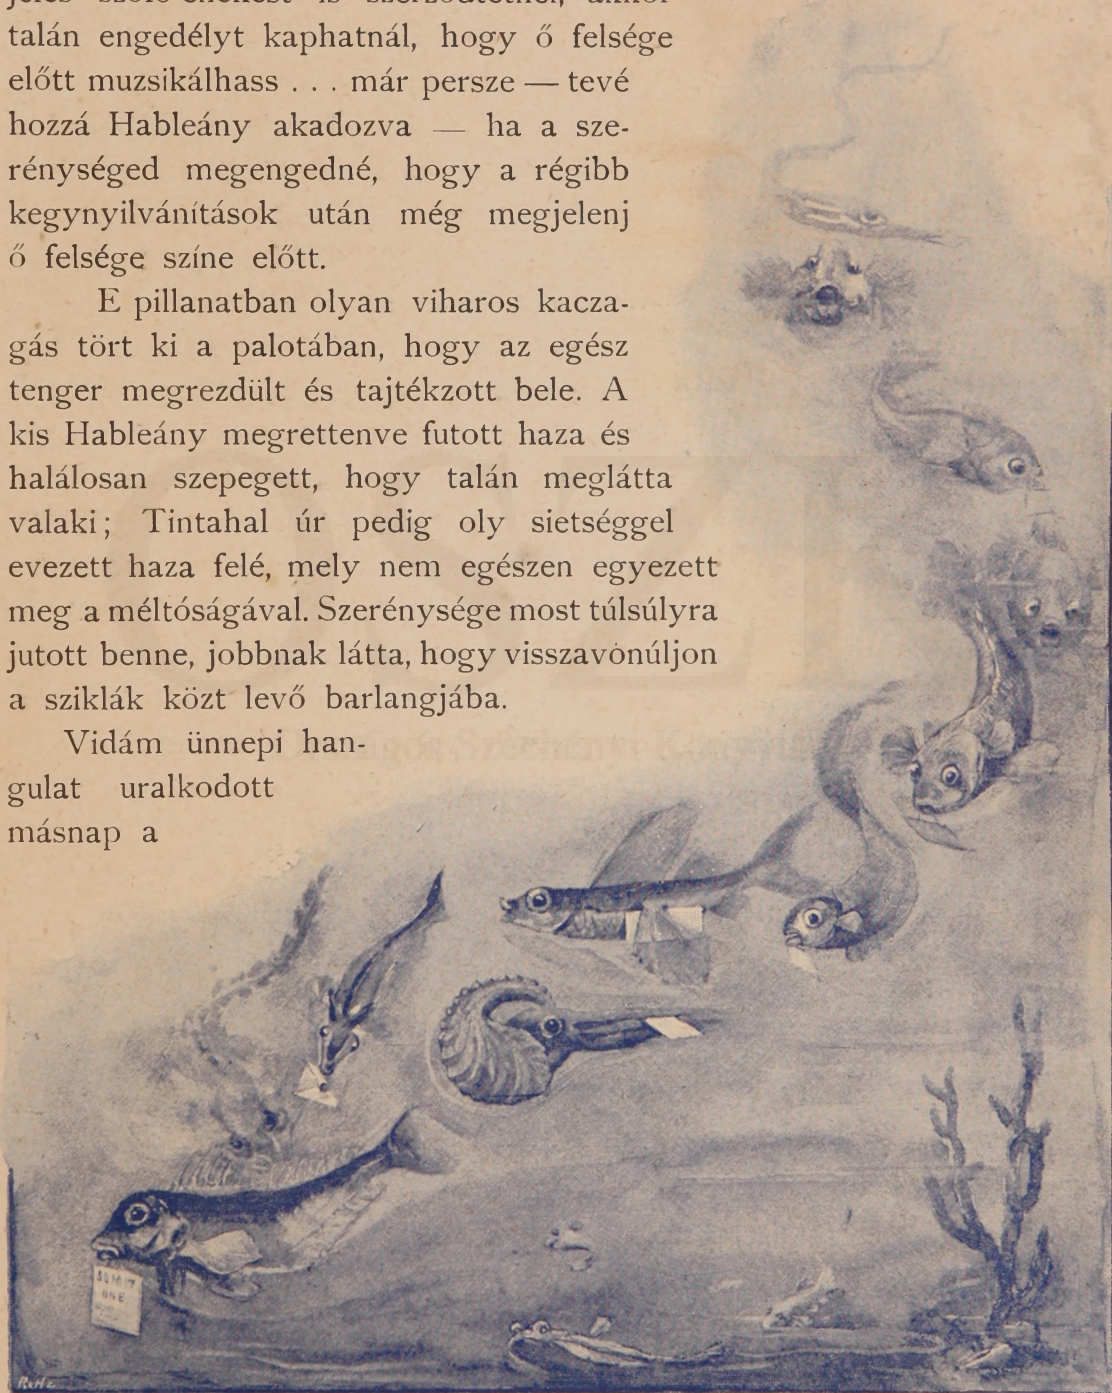 talán engedélyt kaphatnál, hogy ő felsége
előtt muzsikálhass . . . már persze — tevé
hozzá Hableány akadozva — ha a sze-
rénységed megengedné, hogy a régibb
kegynyilvánítások után még megjelenj
ő felsége színe előtt.
E pillanatban olyan viharos kacza-
gás tört ki a palotában, hogy az egész
tenger megrezdült és tajtékzott bele. A
kis Hableány megrettenve futott haza és
halálosan szepegett, hogy talán meglátta
valaki; Tintahal úr pedig oly sietséggel
evezett haza felé, mely nem egészen egyezett
meg a méltóságával. Szerénysége most túlsúlyra
jutott benne, jobbnak látta, hogy visszavonúljon
a sziklák közt levő barlangjába.
Vidám ünnepi han-
gulat uralkodott
másnap a
ADMIT
ONE